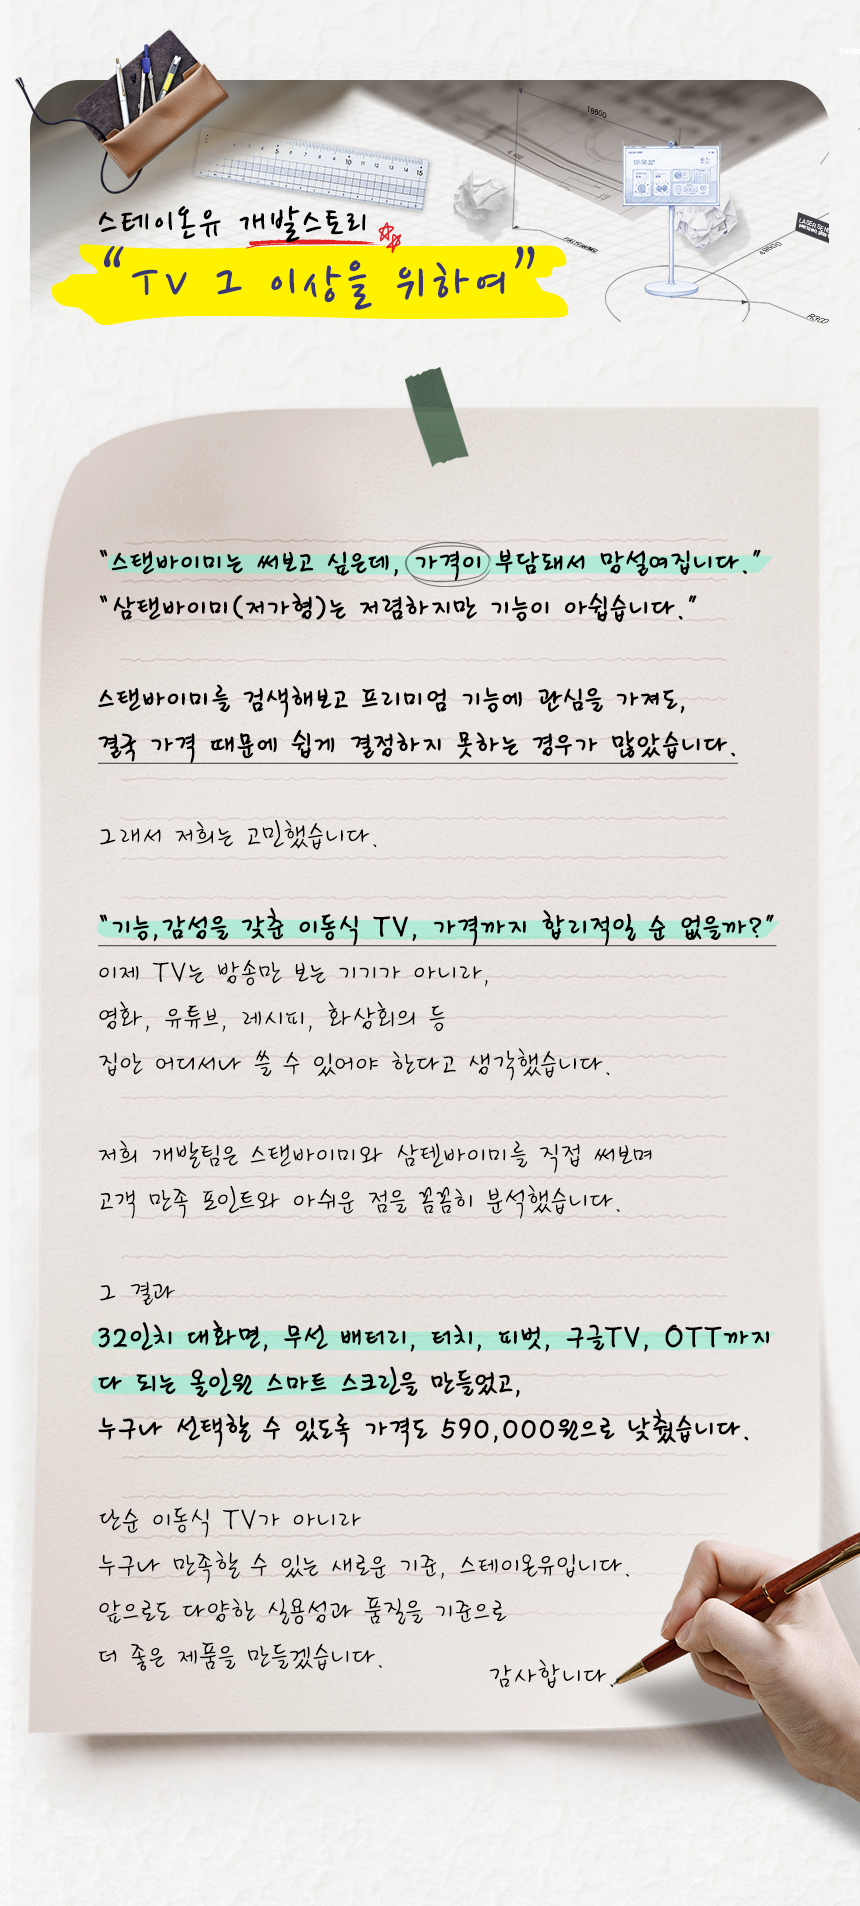 스테이온유 개발스토리
"TV 그 이상을 위하여"
16600
49600
R300
"스탠바이미는 써보고 싶은데, 가격이 부담돼서 망설여집니다."
"삼탠바이미(저가형)는 저렴하지만 기능이 아쉽습니다."
스탠바이미를 검색해보고 프리미엄 기능에 관심을 가져도,
결국 가격 때문에 쉽게 결정하지 못하는 경우가 많았습니다.
그래서 저희는 고민했습니다.
"기능,감성을 갖춘 이동식 TV, 가격까지 합리적일 순 없을까?"
이제 TV는 방송만 보는 기기가 아니라,
영화, 유튜브, 레시피, 화상회의 등
집안 어디서나 쓸 수 있어야 한다고 생각했습니다.
저희 개발팀은 스탠바이미와 삼텐바이미를 직접 써보며
고객 만족 포인트와 아쉬운 점을 꼼꼼히 분석했습니다.
그 결과
32인치 대화면, 무선 배터리, 터치, 피벗, 구글TV, OTT까지
다 되는 올인원 스마트 스크린을 만들었고,
누구나 선택할 수 있도록 가격도 590,000원으로 낮췄습니다.
단순 이동식 TV가 아니라
누구나 만족할 수 있는 새로운 기준, 스테이온유입니다.
앞으로도 다양한 실용성과 품질을 기준으로
더 좋은 제품을 만들겠습니다.
감사합니다.